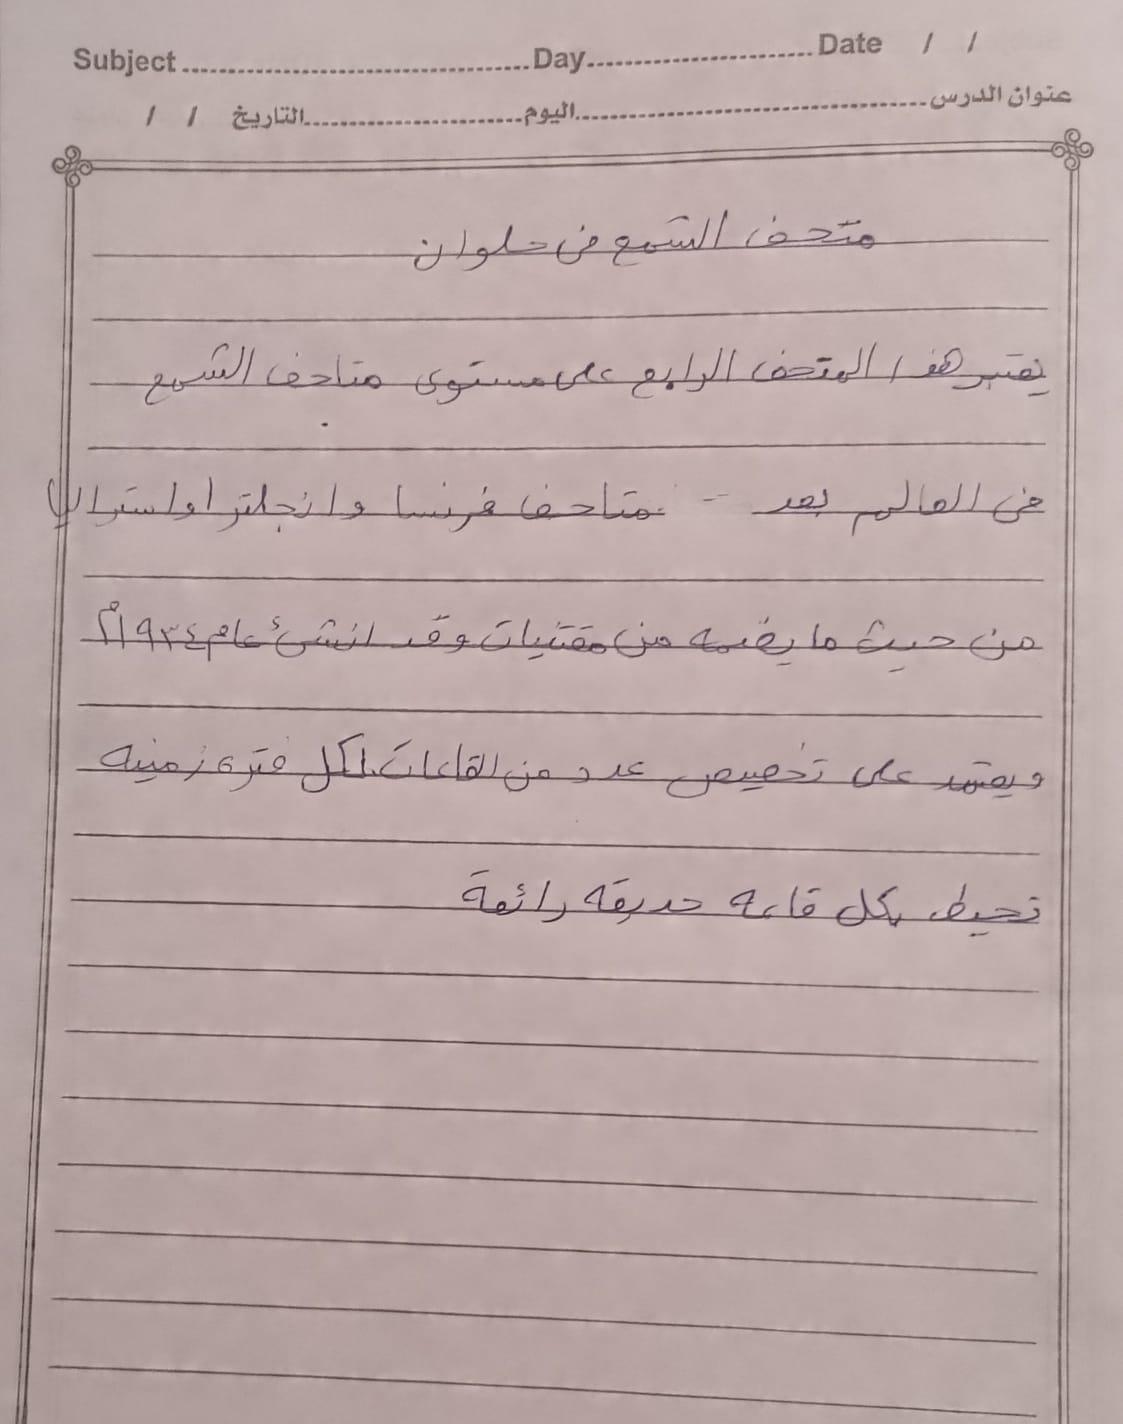 Subject ........ Day ........ Date / /
عنوان الدرس ........ اليوم ........ التاريخ / /
متحف الشمع فى حلوان
يعتبر هذا المتحف الرابع على مستوى متاحف الشمع
فى العالم بعد - متاحف فرنسا وانجلترا واستراليا
من حيث ما يضمه من مقتنيات وقد انشئ عام ١٩٣٤م
ويعتمد على تخصيص عدد من القاعات لكل فتره زمنيه
تحيط بكل قاعه حديقه رائعة